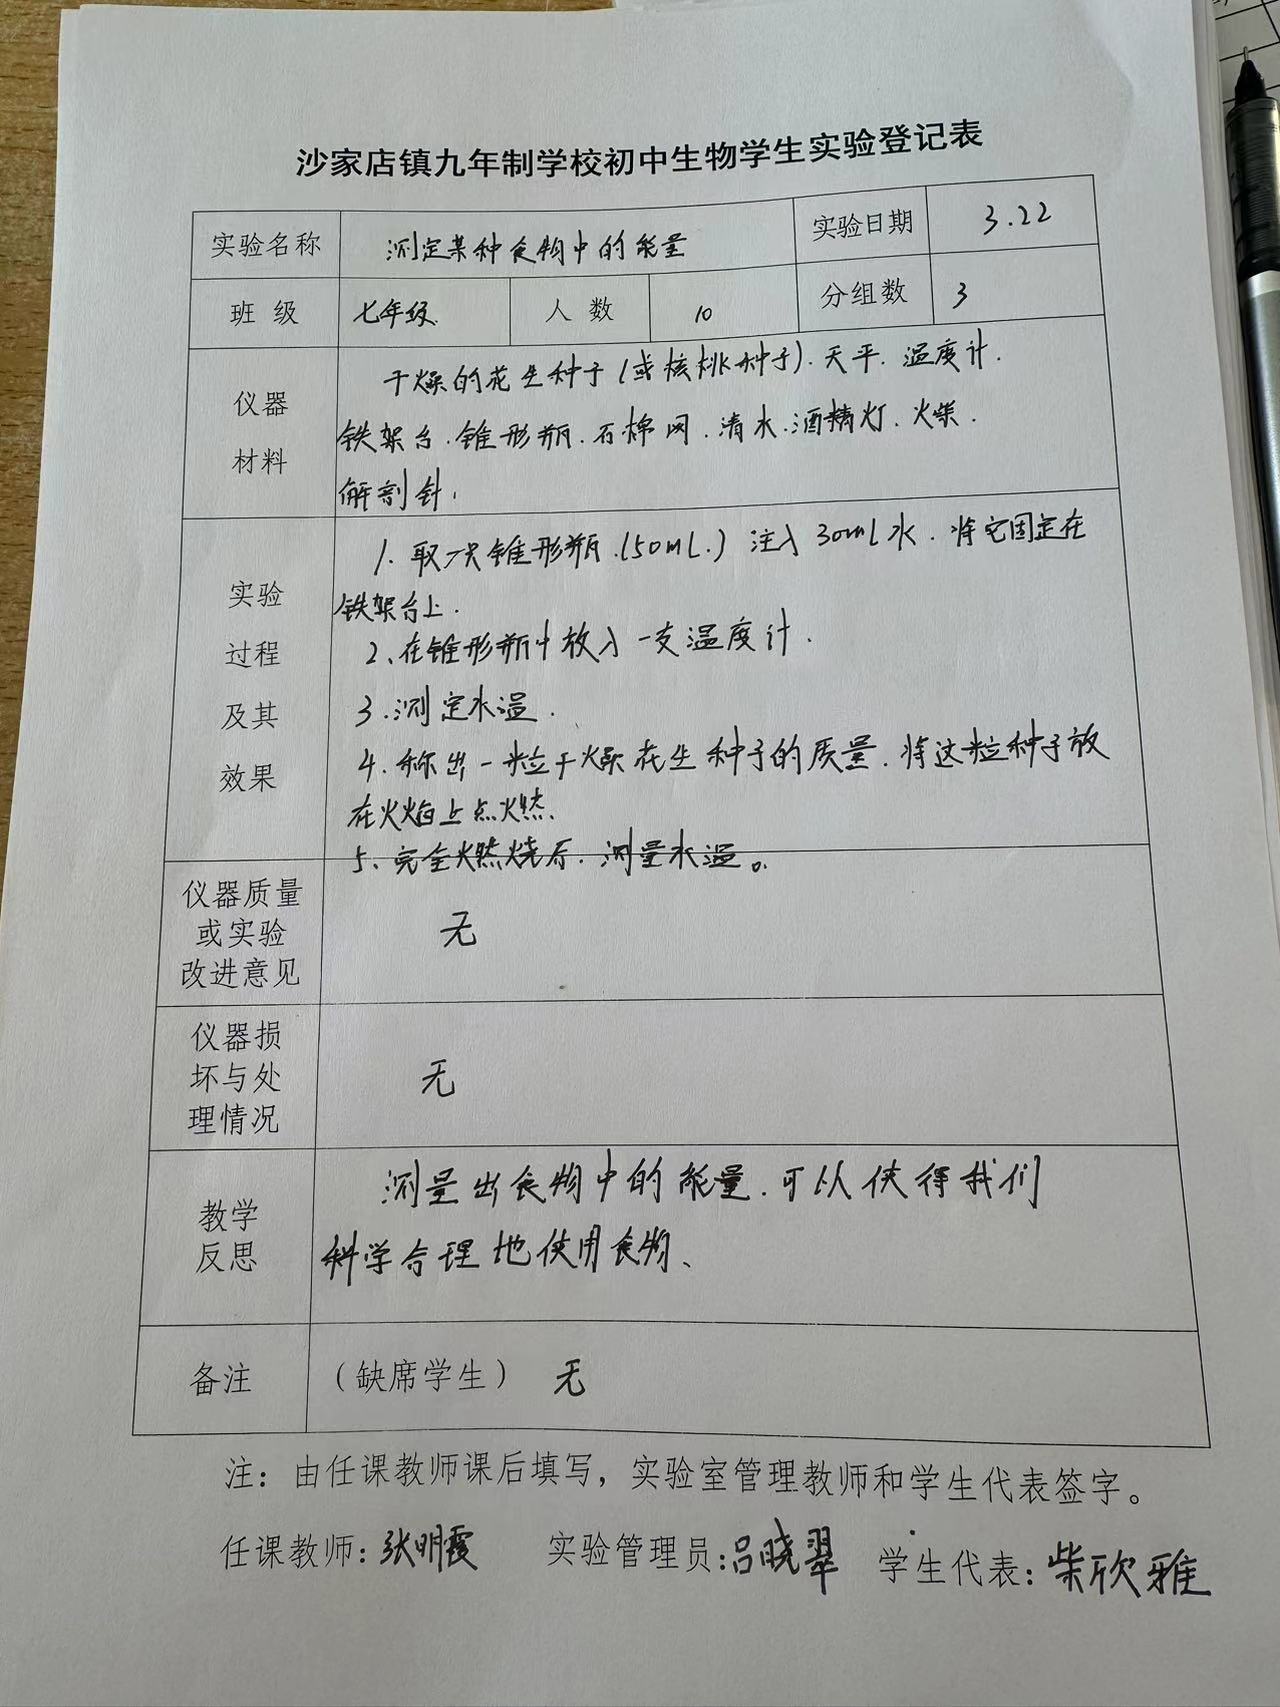 沙家店镇九年制学校初中生物学生实验登记表
实验名称 测定某种食物中的能量 实验日期 3.22
班 级 七年级. 人 数 10 分组数 3
仪器
材料
干燥的花生种子(或核桃种子).天平.温度计.
铁架台.锥形瓶.石棉网.清水.酒精灯.火柴.
解剖针.
实验
过程
及其
效果
1.取一只锥形瓶.(50mL.)注入30ml水.将它固定在
铁架台上.
2、在锥形瓶中放入一支温度计.
3.测定水温.
4.称出一粒干燥花生种子的质量.将这粒种子放
在火焰上点燃.
5、完全燃烧后.测量水温。
仪器质量
或实验
改进意见
无
仪器损
坏与处
理情况
无
教学
反思
测量出食物中的能量.可以使得我们
科学合理地使用食物、
备注 (缺席学生) 无
注：由任课教师课后填写，实验室管理教师和学生代表签字。
任课教师：张明霞 实验管理员：吕晓翠 学生代表：柴欣雅